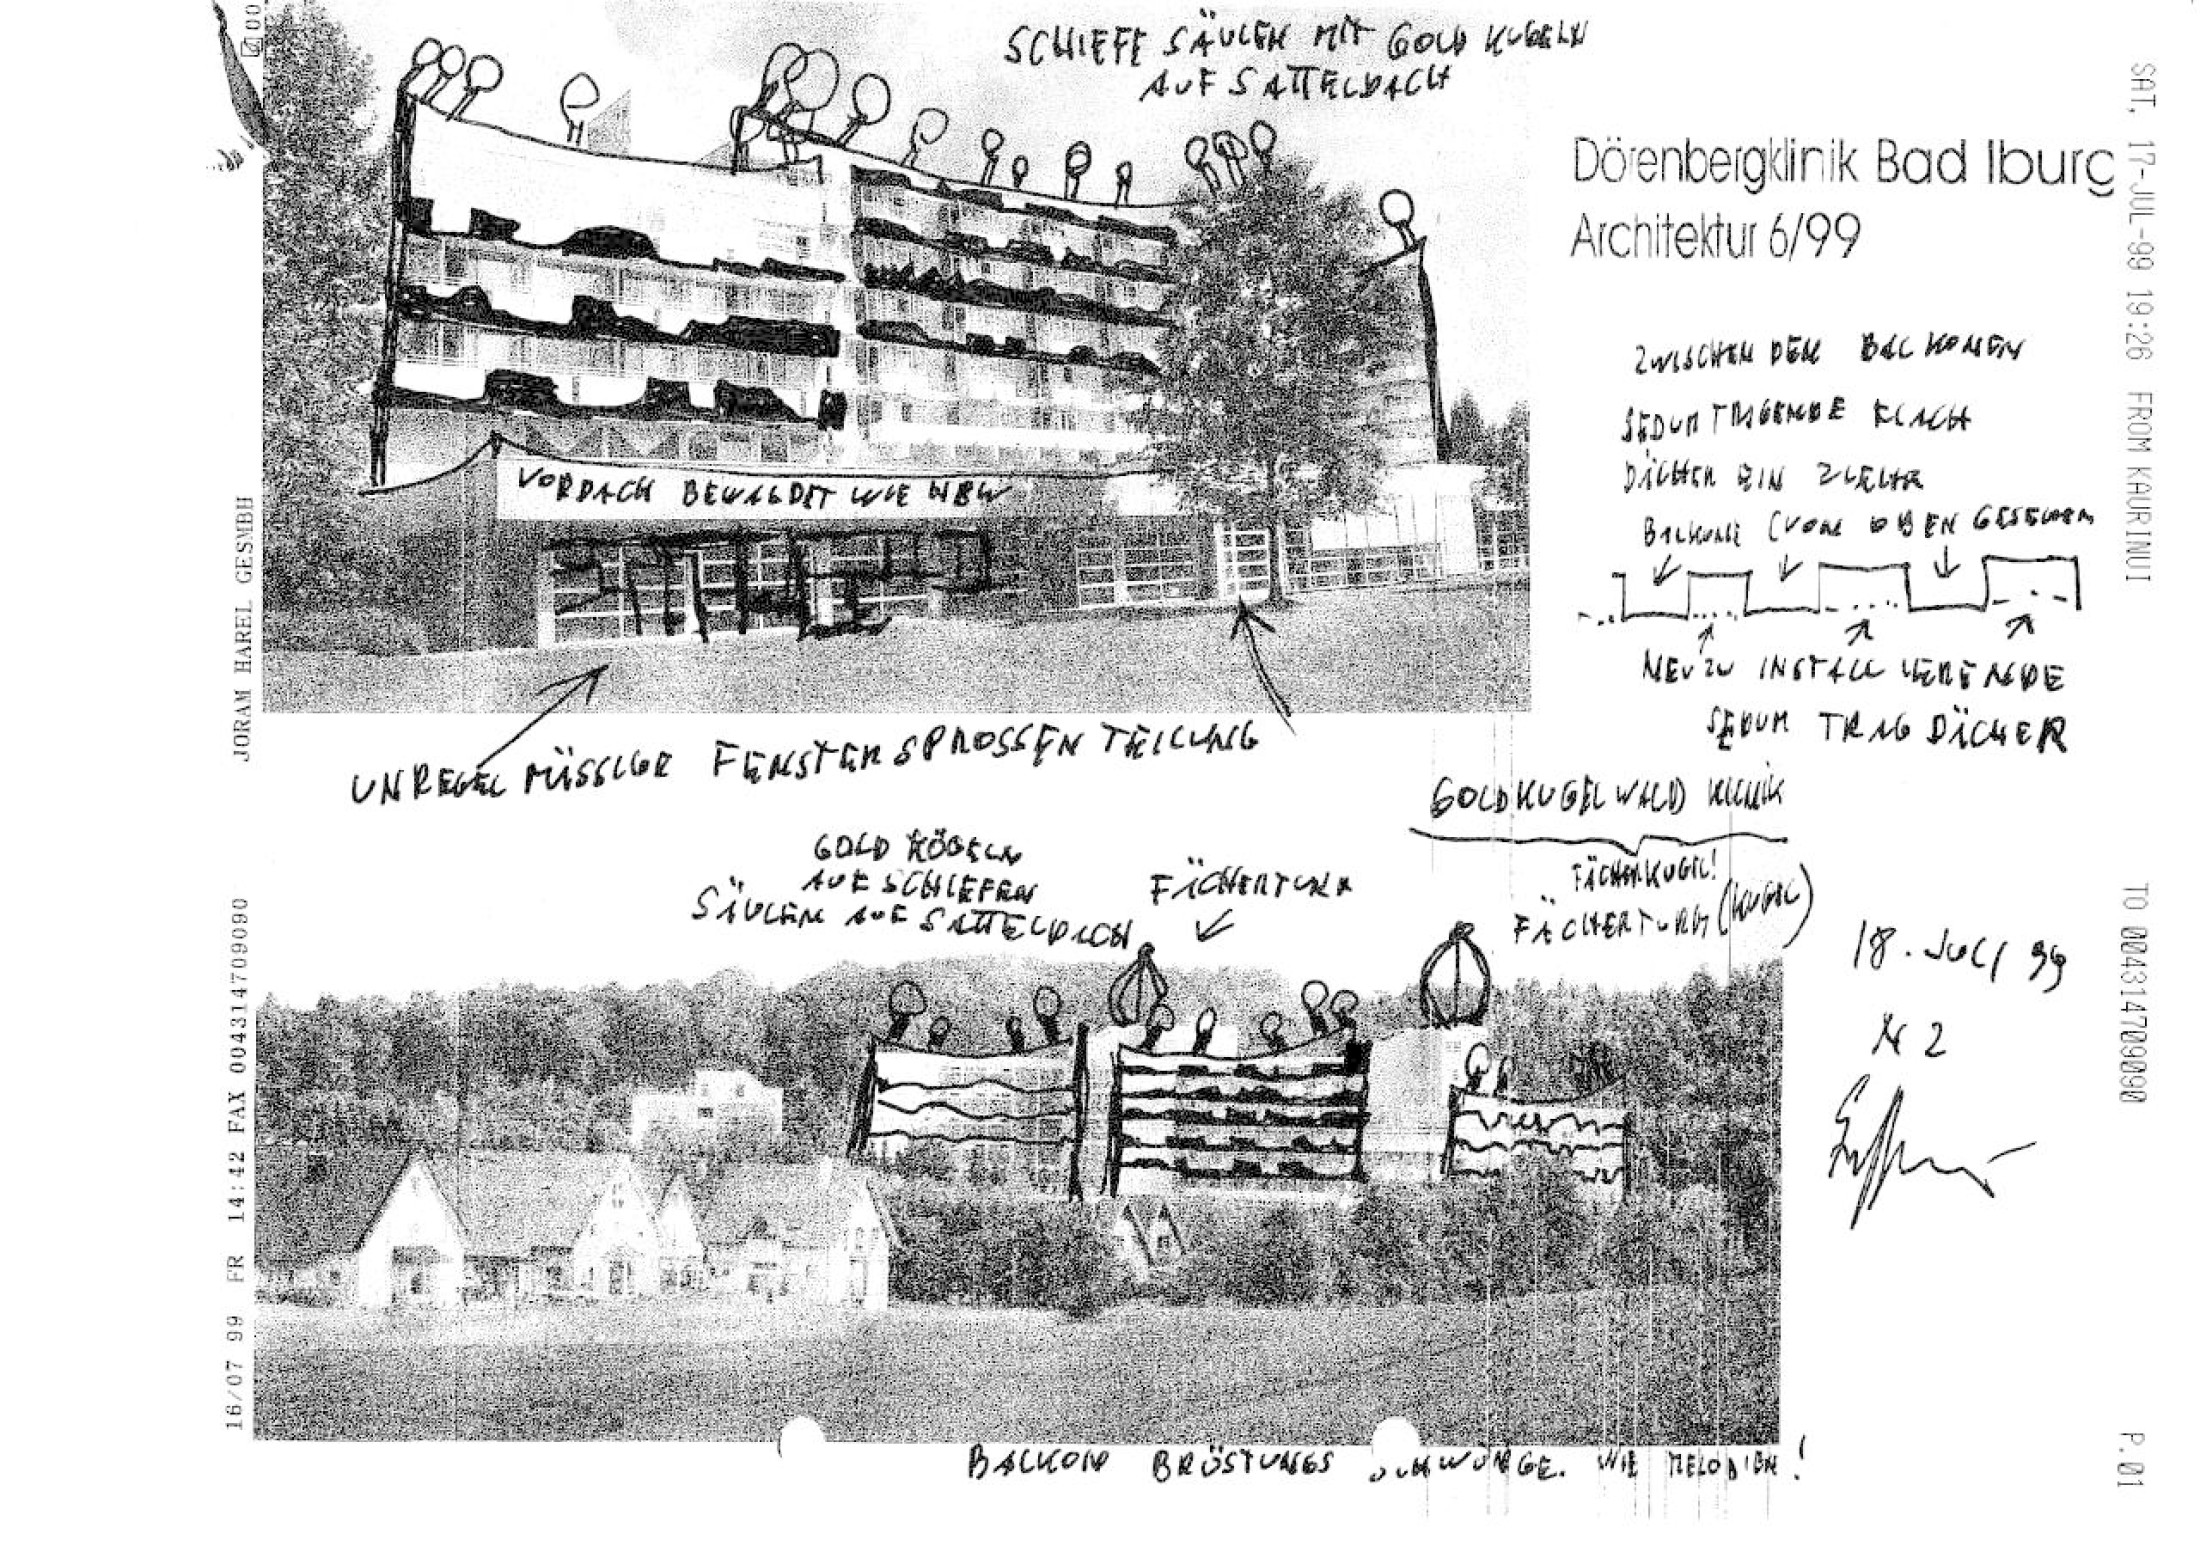 SCHIEFE SÄULEN MIT GOLD KUGELN
AUF SATTELDACH
Dörenbergklinik Bad Iburg
Architektur 6/99
ZWISCHEN DEN BALKONEN
SEDUM TRAGENDE FLACH
DÄCHER EIN ZIEHEN
BALKONE (VON OBEN GESEHEN
NEU ZU INSTALLIERENDE
SEDUM TRAG DÄCHER
VORDACH BEWALDET WIE
UNREGELMÄSSIGE FENSTERSPROSSEN TEILUNG
GOLDKUGELWALD KLINIK
FÄCHERKUGEL!
FÄCHERTURM (KUGEL)
GOLD KUGELN
AUF SCHIEFEN
SÄULEN AUF SATTELDACH
FÄCHERTURM
18. JULI 99
N 2
BALKON BRÜSTUNGS SCHWÜNGE. WIE MELODIEN!
JORAM HAREL GESMBH
16/07 99 FR 14:42 FAX 004314709090
SAT, 17-JUL-99 19:26 FROM KAURINUI TO 004314709090 P.01